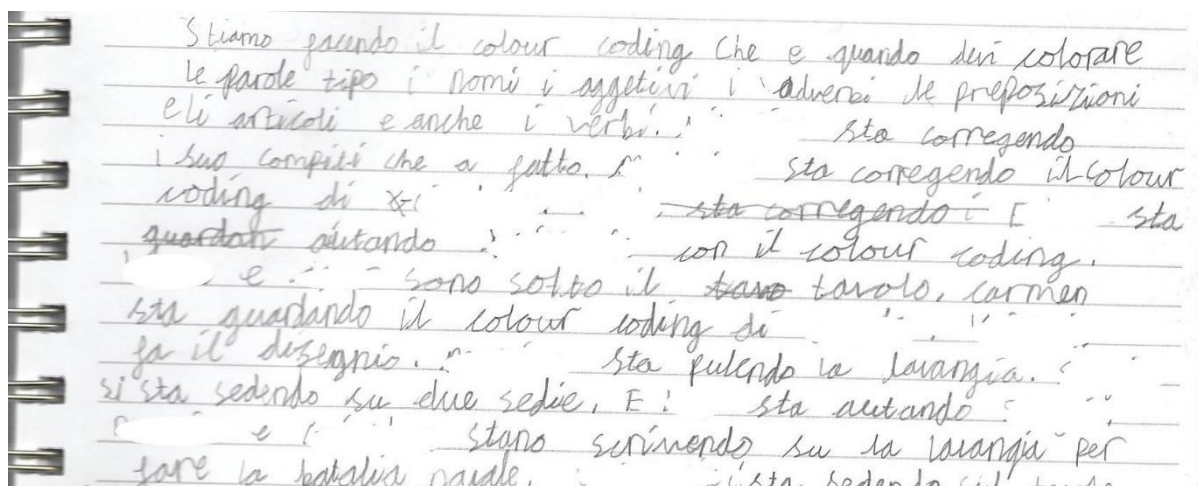 Stiamo facendo il colour coding che e quando devi colorare
le parole tipo i nomi i aggetivi i adverbi le preposizioni
e li articoli e anche i verbi. sta corregendo
i suo compiti che a fatto. sta corregendo il colour
coding di sta corregendo i E sta
guardan aiutando con il colour coding.
e sono sotto il tavo tavolo, carmen
sta guardando il colour coding di
fa il disegnio. sta pulendo la lavangia.
si sta sedendo su due sedie, E sta autando
e stano scrivendo su la lavangia per
fare la batalia navale. sta sedendo